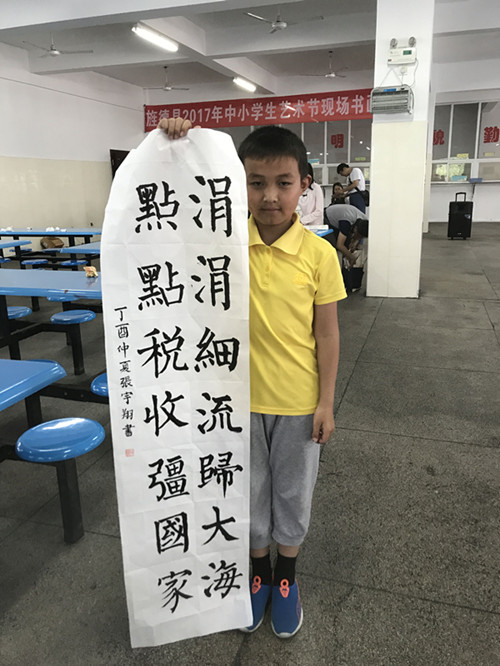 旌德县2017年中小学生艺术节现场书画
明
貌
勤
涓涓細流歸大海
點點税收彊國家
丁酉仲夏張宇翔書